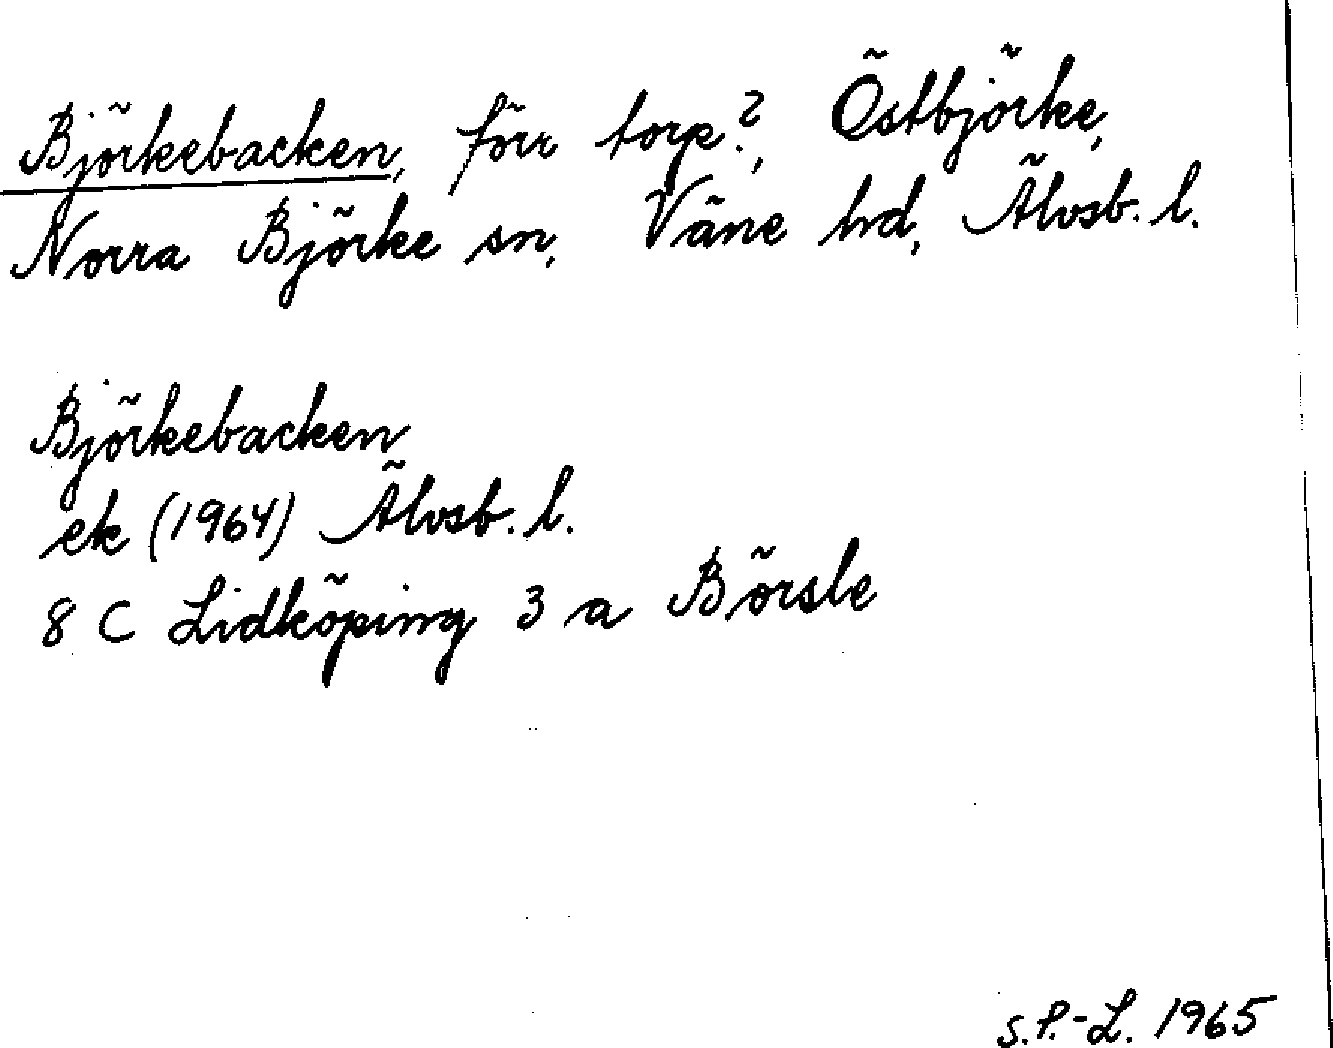 Björkebacken, förr torp?, Östbjörke,
Norra Björke sn, Väne hd, Älvsb. l.
Björkebacken
ek (1964) Älvsb. l.
8 C Lidköping 3 a Börsle
S.P.-L. 1965